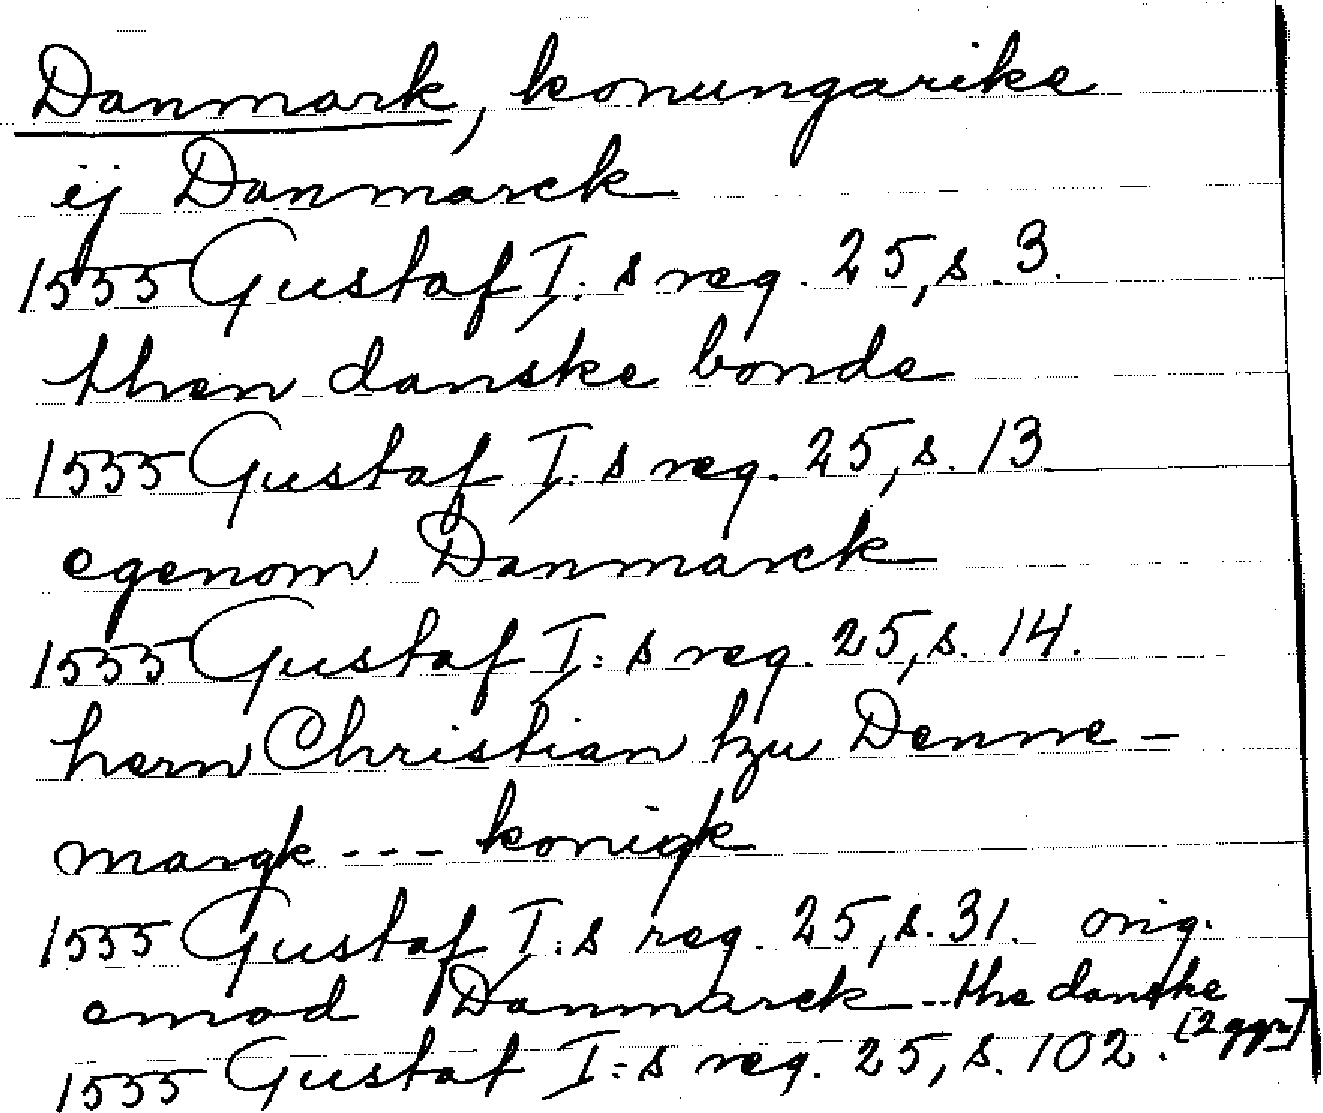 Danmark, konungarike
ij Danmarck
1555 Gustaf I:s reg. 25, s. 3.
then danske bonde
1555 Gustaf I:s reg. 25, s. 13
egenom Danmarck
1555 Gustaf I:s reg. 25, s. 14.
hern Christian tzu Denne-
margk --- konigk
1555 Gustaf I:s reg. 25, s. 31. orig.
emod Danmarck -- the danske
1555 Gustaf I:s reg. 25, s. 102. (2 ggr)